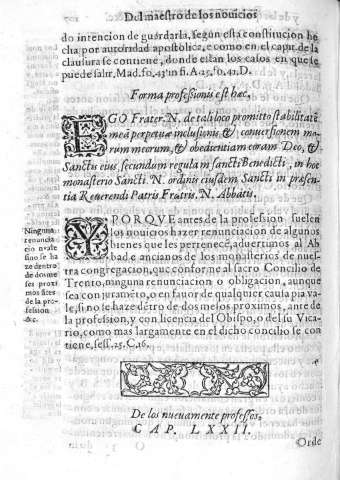 Del maestro de los nouicios
do intencion de guardarla, según esta constitucion he
cha por autoridad apostolica, e como en el capit. de la
clausura se contiene, donde estan los casos en que se
puede salir, Mad. fo. 43 in fi. A. 25. fo. 42. D.
Forma professionis est hæc.
EGO Frater. N. de tali loco promitto stabilitatē
meā perpetuæ inclusionis, & conuersionem mo-
rum meorum, & obedientiam coram Deo, &
Sanctis eius, secundum regulam sancti Benedicti, in hoc
monasterio Sancti. N. ordinis eiusdem Sancti in præsen-
tia Reuerendi Patris Fratris. N. Abbatis.
Y PORQVE antes de la profession suelen
los nouicios hazer renunciacion de algunos
bienes que les pertenecē, aduertimos al Ab
bad e ancianos de los monasterios de nues-
tra congregacion, que conforme al sacro Concilio de
Trento, ninguna renunciacion o obligacion, aunque
sea con juramēto, o en fauor de qualquier causa pia va-
le, si no se haze dētro de dos meses proximos, ante de
la profession, y con licencia del Obispo, o de su Vica-
rio, como mas largamente en el dicho concilio se con
tiene, sess. 25. C. 16.
Ninguna
renuncia
cio vale
sino se ha
ze dentro
de dos me
ses proxi
mos ātes
de la pro-
fession
&c.
De los nueuamente professos,
CAP. LXXII.
Orde